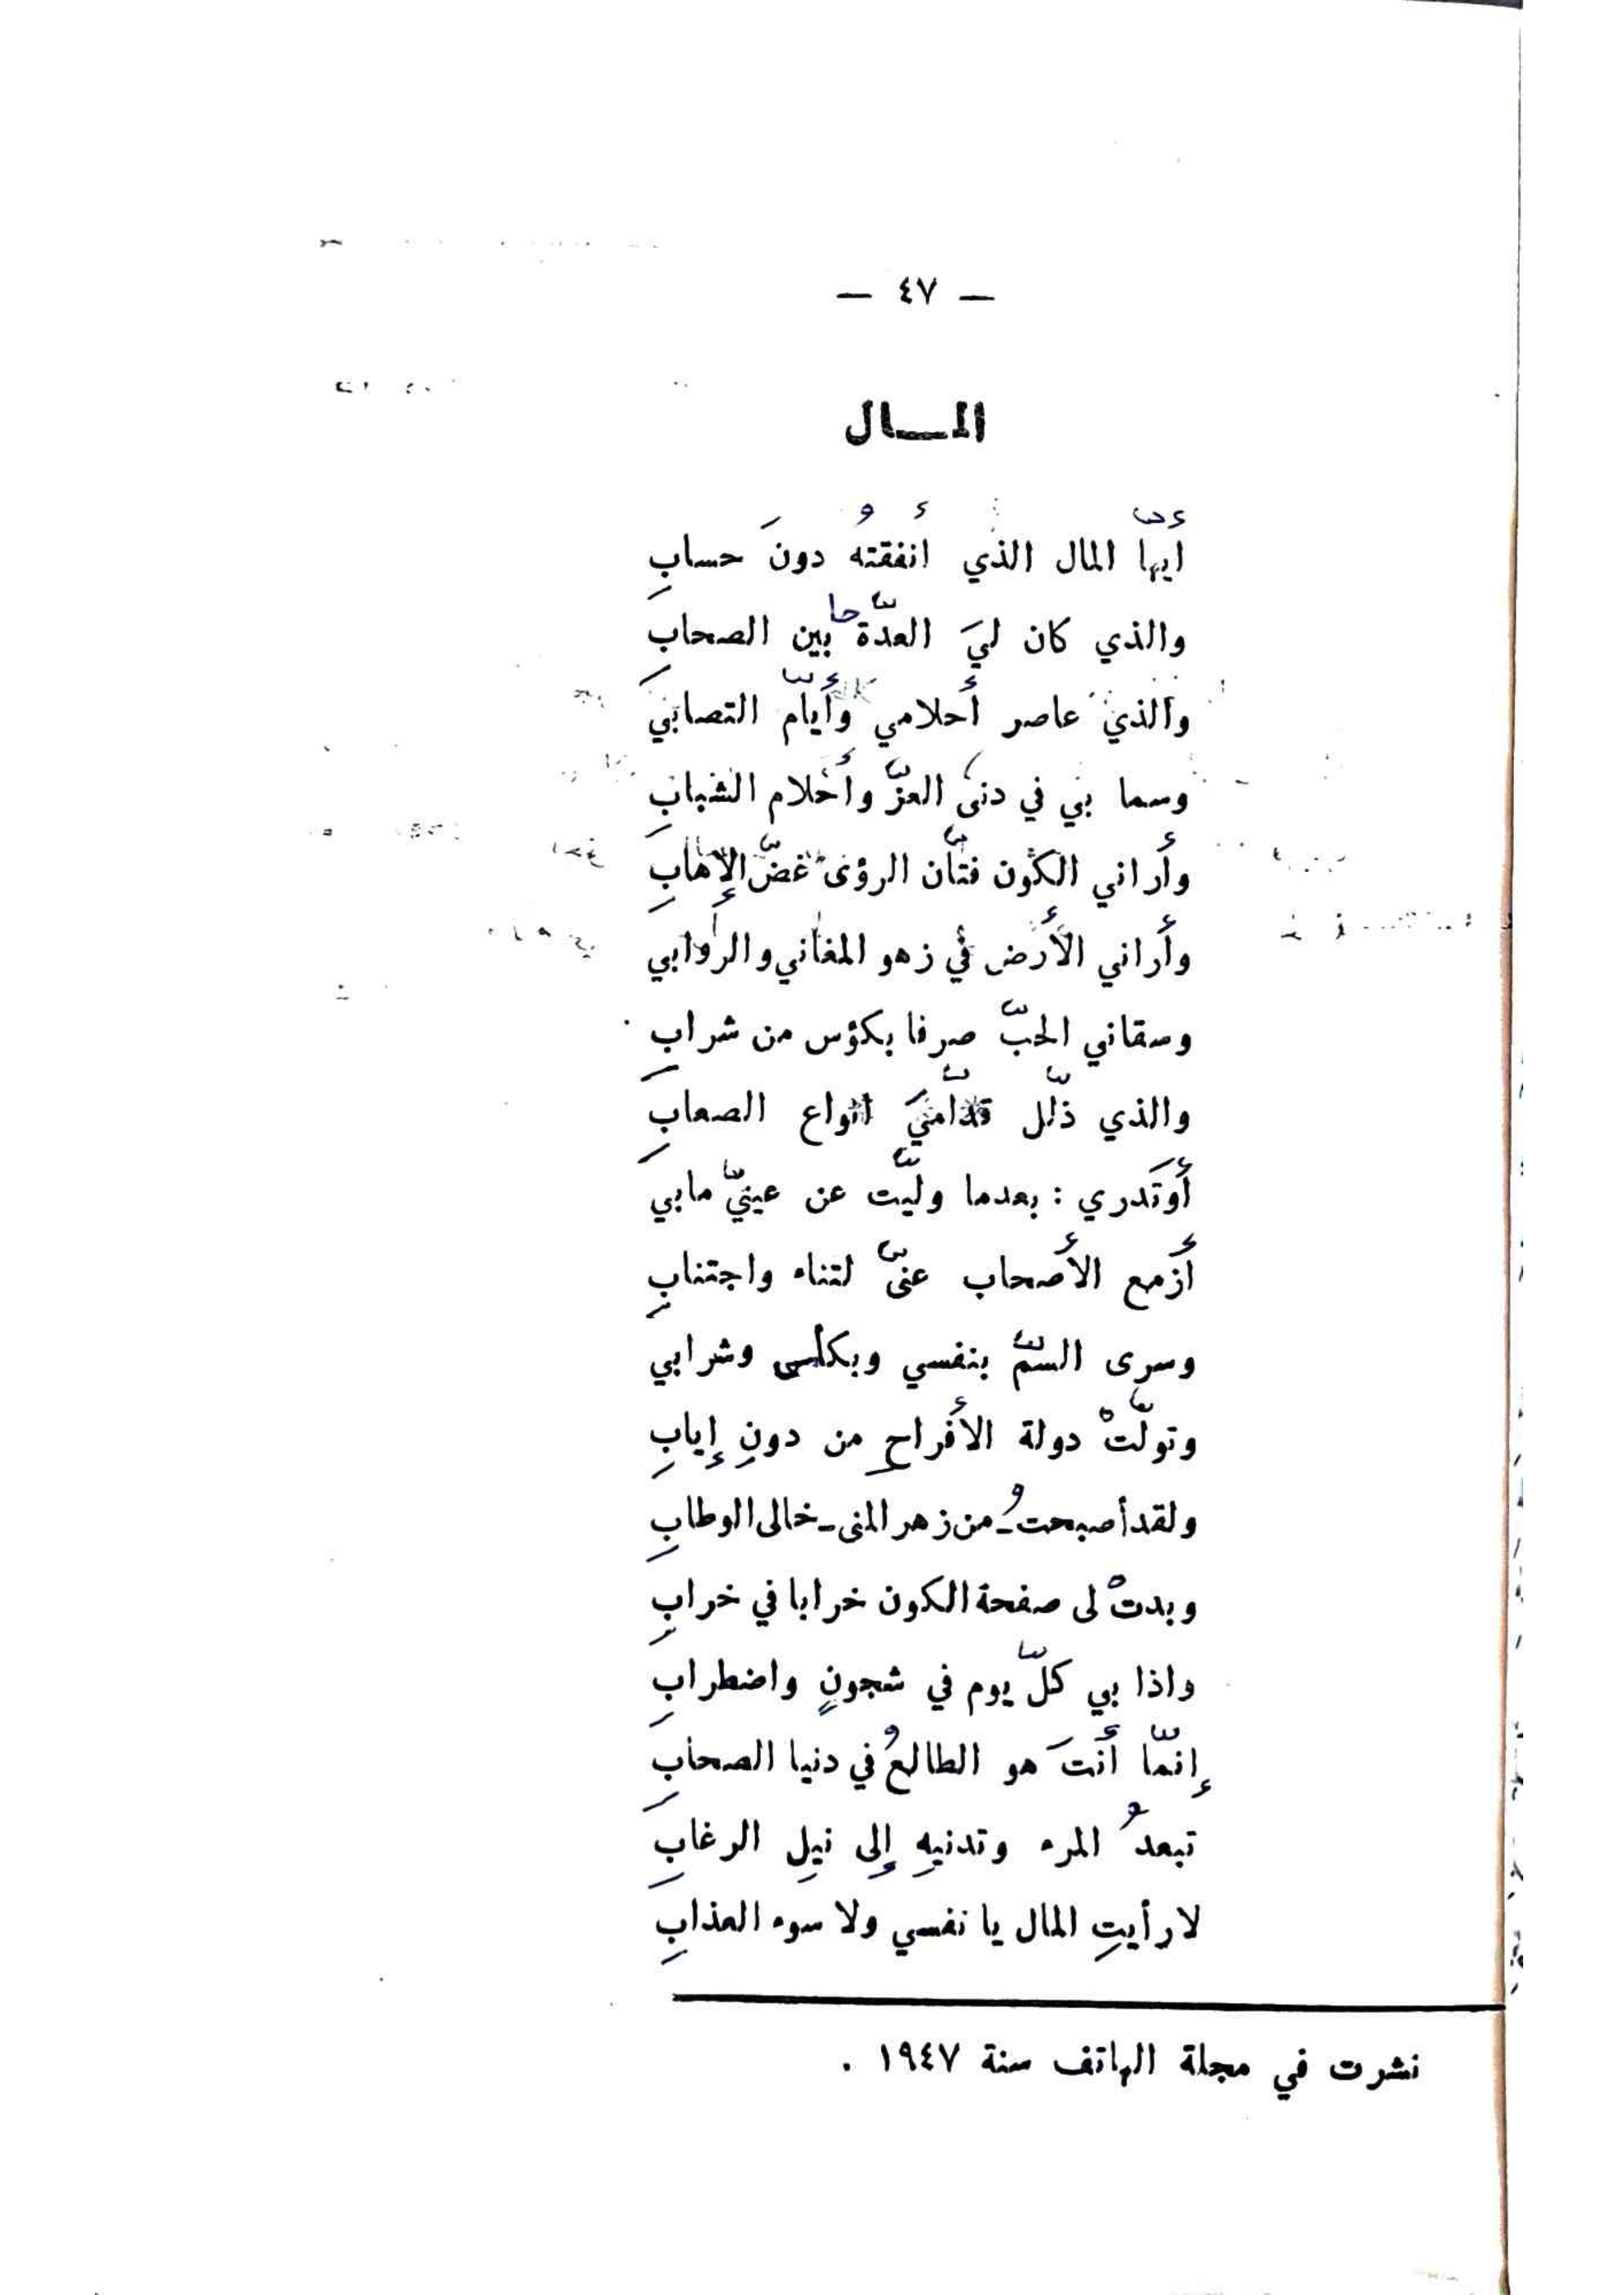 — ٤٧ —
المـــال
أيّها المال الذي أنفقتهُ دونَ حسابِ
والذي كان ليَ العدّة بين الصحابِ
والذي عاصر أحلامي وأيّام التصابي
وسما بي في دنى العزّ وأحلام الشبابِ
وأراني الكون فتّان الرؤى غضّ الإهابِ
وأراني الأرض في زهو المغاني والروابي
وسقاني الحبّ صرفا بكؤس من شرابِ
والذي ذلّل قدّاميَ انواع الصعابِ
أوَتدري : بعدما ولّيت عن عينيّ مابي
أزمع الأصحاب عنىّ لتناء واجتنابِ
وسرى السمّ بنفسي وبكأسى وشرابي
وتولّتْ دولة الأفراحِ من دونِ إيابِ
ولقد أصبحتُ ـ من زهر المنى ـ خالى الوطابِ
وبدتْ لى صفحة الكون خرابا في خرابِ
واذا بي كلّ يوم في شجونٍ واضطرابِ
إنمّا أنتَ هو الطالعُ في دنيا الصحابِ
تبعدُ المرء وتدنيهِ إلى نيلِ الرغابِ
لا رأيتِ المال يا نفسي ولا سوء العذابِ
نشرت في مجلة الهاتف سنة ١٩٤٧ .